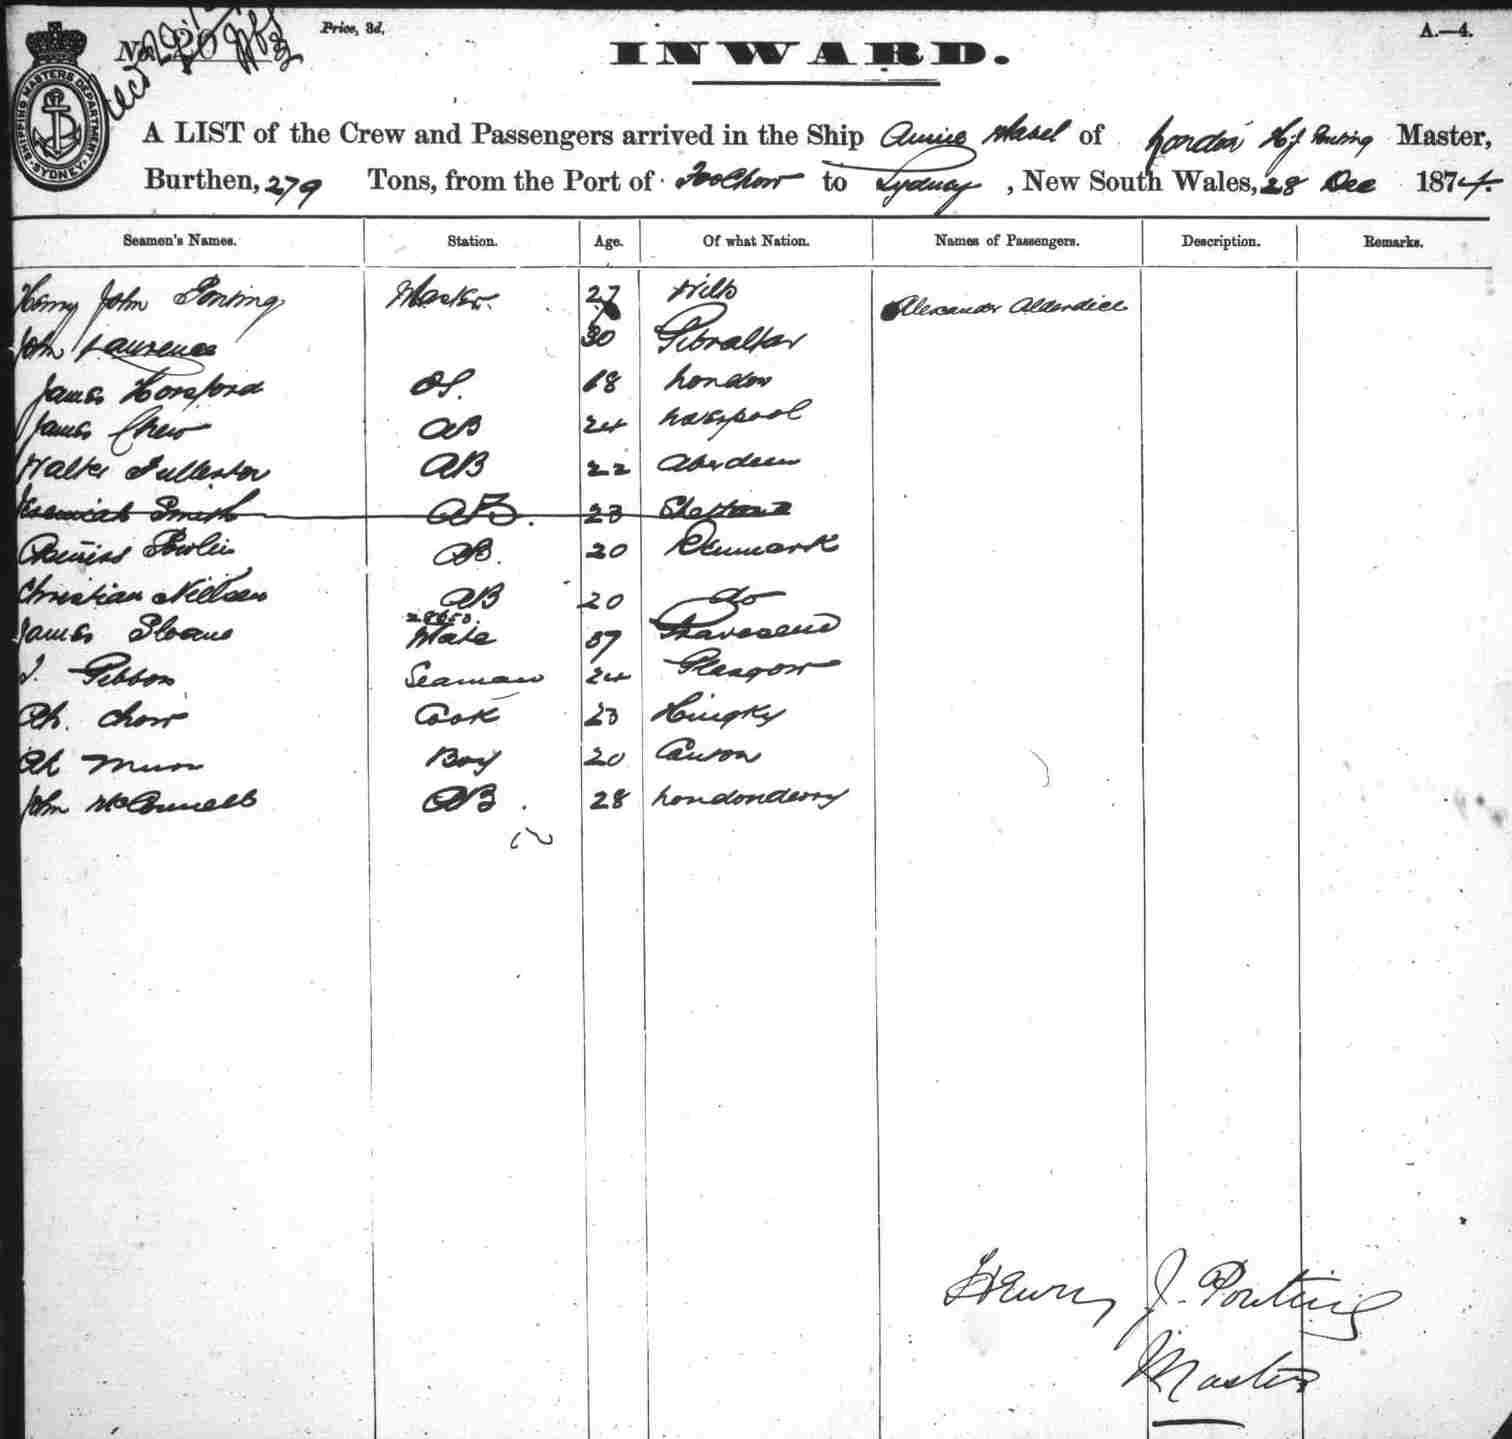 No.
Price, 3d.
A.—4.
SHIPPING MASTERS DEPARTMENT SYDNEY
INWARD.
A LIST of the Crew and Passengers arrived in the Ship Annie Mabel of London H.J. Ponting Master,
Burthen, 279 Tons, from the Port of FooChow to Sydney, New South Wales, 28 Dec 1874.
Seamen's Names. Station. Age. Of what Nation. Names of Passengers. Description. Remarks.
Henry John Ponting Master. 27 Wilts Alexander Alderdice
John Laurence 30 Gibraltar
James Horsford OS. 18 London
James Chew AB 24 Liverpool
Walter Fullerton AB 22 Aberdeen
Jeremiah Smith AB. 23 Shetland
AB. 20 Denmark
Christian Nielsen AB 20 do
James Sloane Mate 37 Gravesend
J. Gibbon Seaman 24 Glasgow
Ah. Chow Cook 23
Ah Mun Boy 20 Canton
John McConnell AB. 28 Londonderry
12
Henry J. Ponting
Master